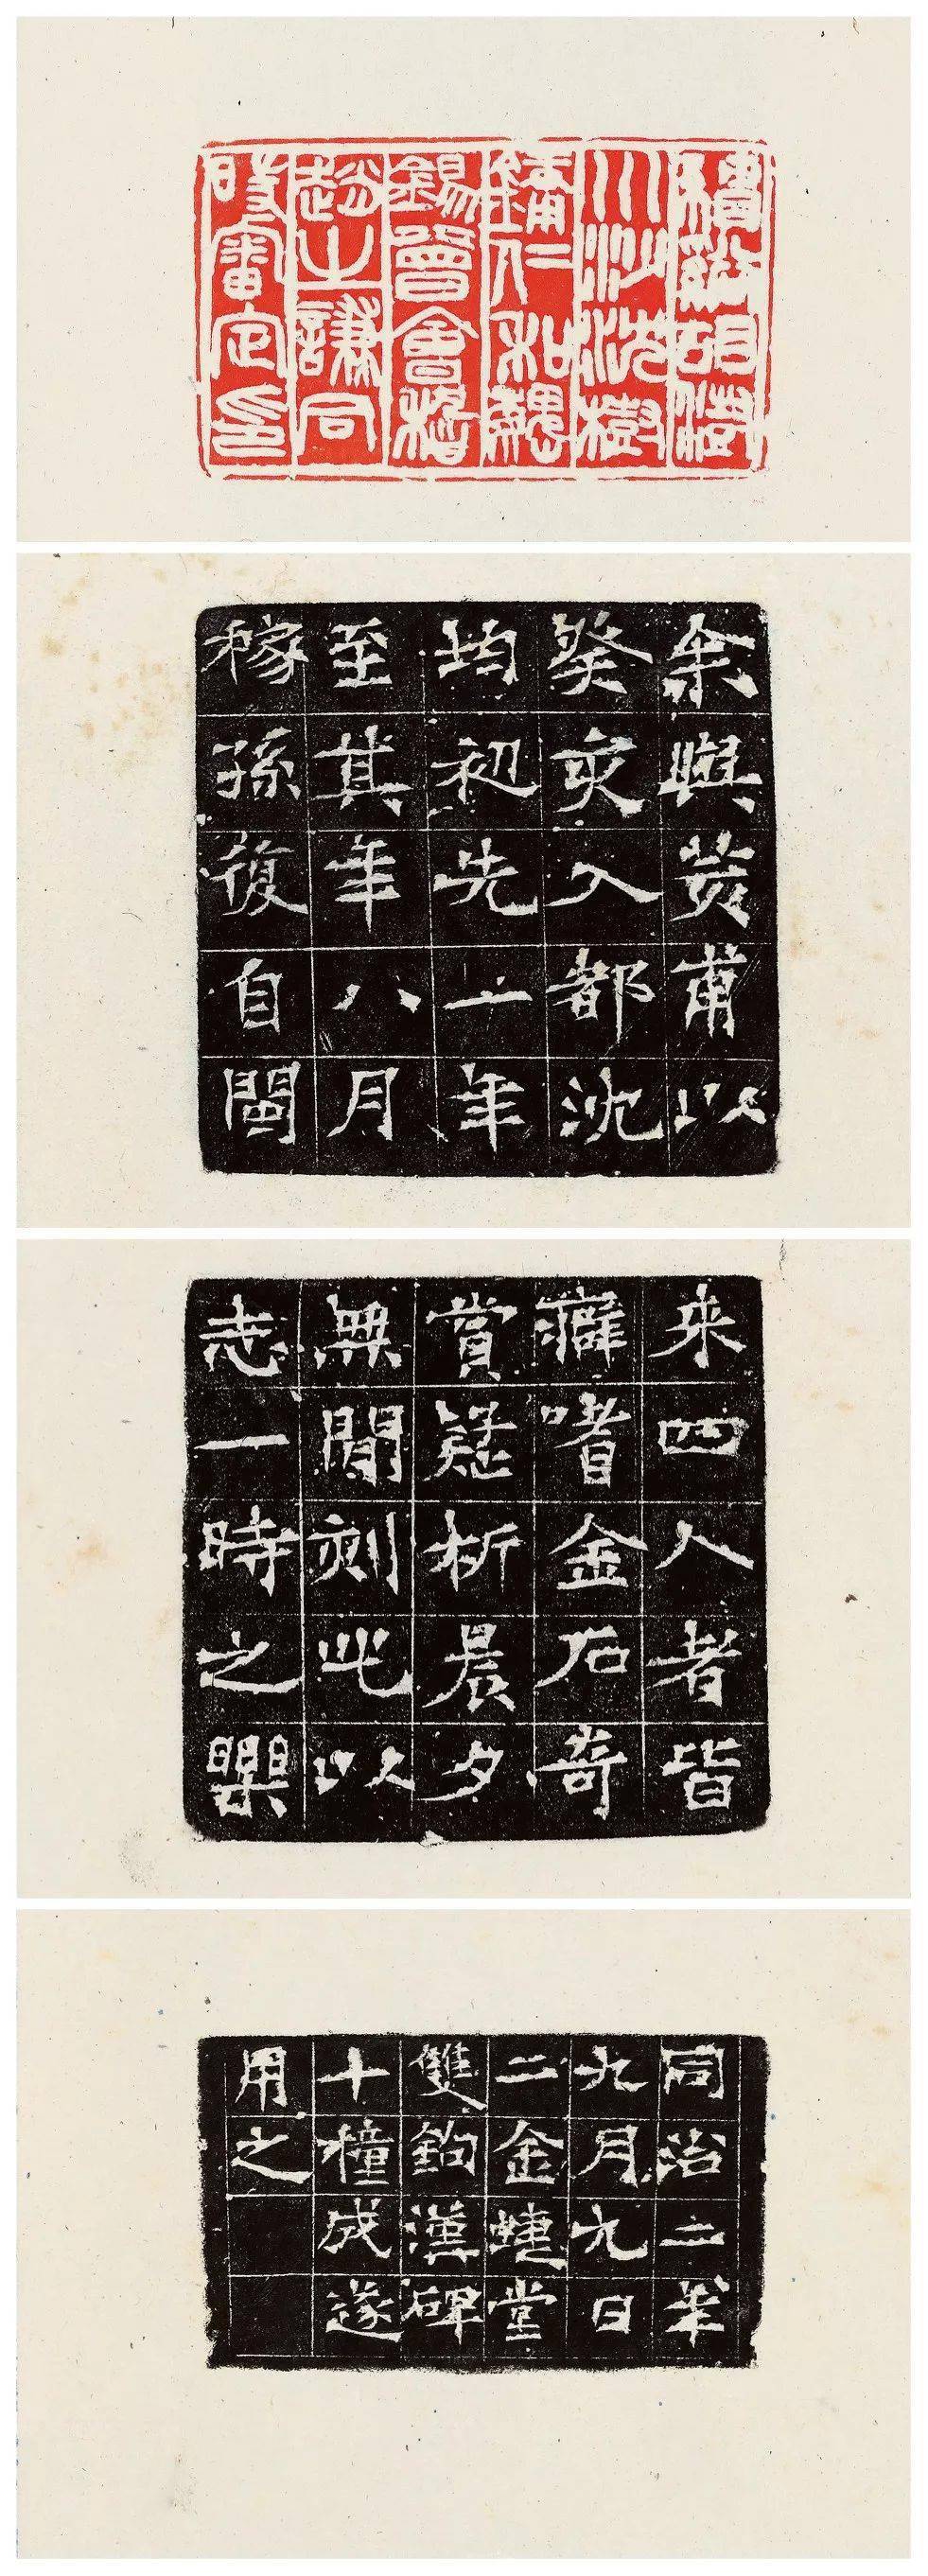 績谿胡澍
川沙沈樹
鏞仁和魏
錫曾會稽
趙之謙同
時審定印
余與荄甫以
癸亥入都沈
均初先一年
至其年八月
稼孫復自閩
来四人者皆
癖嗜金石奇
賞疑析晨夕
無閒刻此以
志一時之樂
同治二年
九月九日
二金蜨堂
雙鉤漢碑
十種成遂
用之